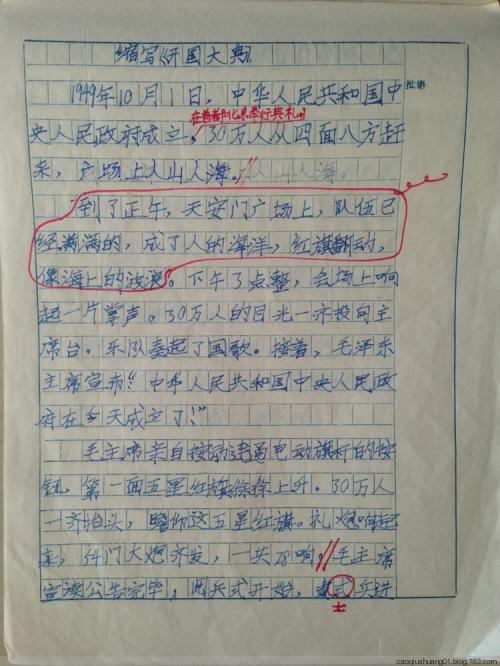 缩写《开国大典》
1949年10月1日,中华人民共和国中
批语
在首都北京举行典礼。
央人民政府成立,30万人从四面八方赶
来,广场上人山人海。人山人海。
到了正午,天安门广场上,队伍已
经满满的,成了人的海洋,红旗翻动,
像海上的波浪。下午3点整,会场上响
起一片掌声。30万人的目光一齐投向主
席台。乐队奏起了国歌。接着,毛泽东
主席宣布:“中华人民共和国中央人民政
府在今天成立了!”
毛主席亲自按动连通电动旗杆的按
钮,第一面五星红旗徐徐上升。30万人
一齐抬头,瞻仰这五星红旗。礼炮响起
来,54门大炮齐发,一共28响。毛主席
宣读公告完毕,阅兵式开始,式兵进
caoqiushuang01.blog.163.com